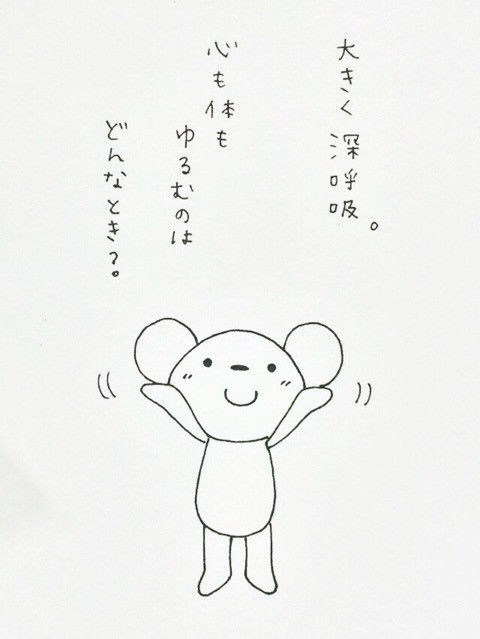 大きく深呼吸。
心も体も
ゆるむのは
どんなとき?。